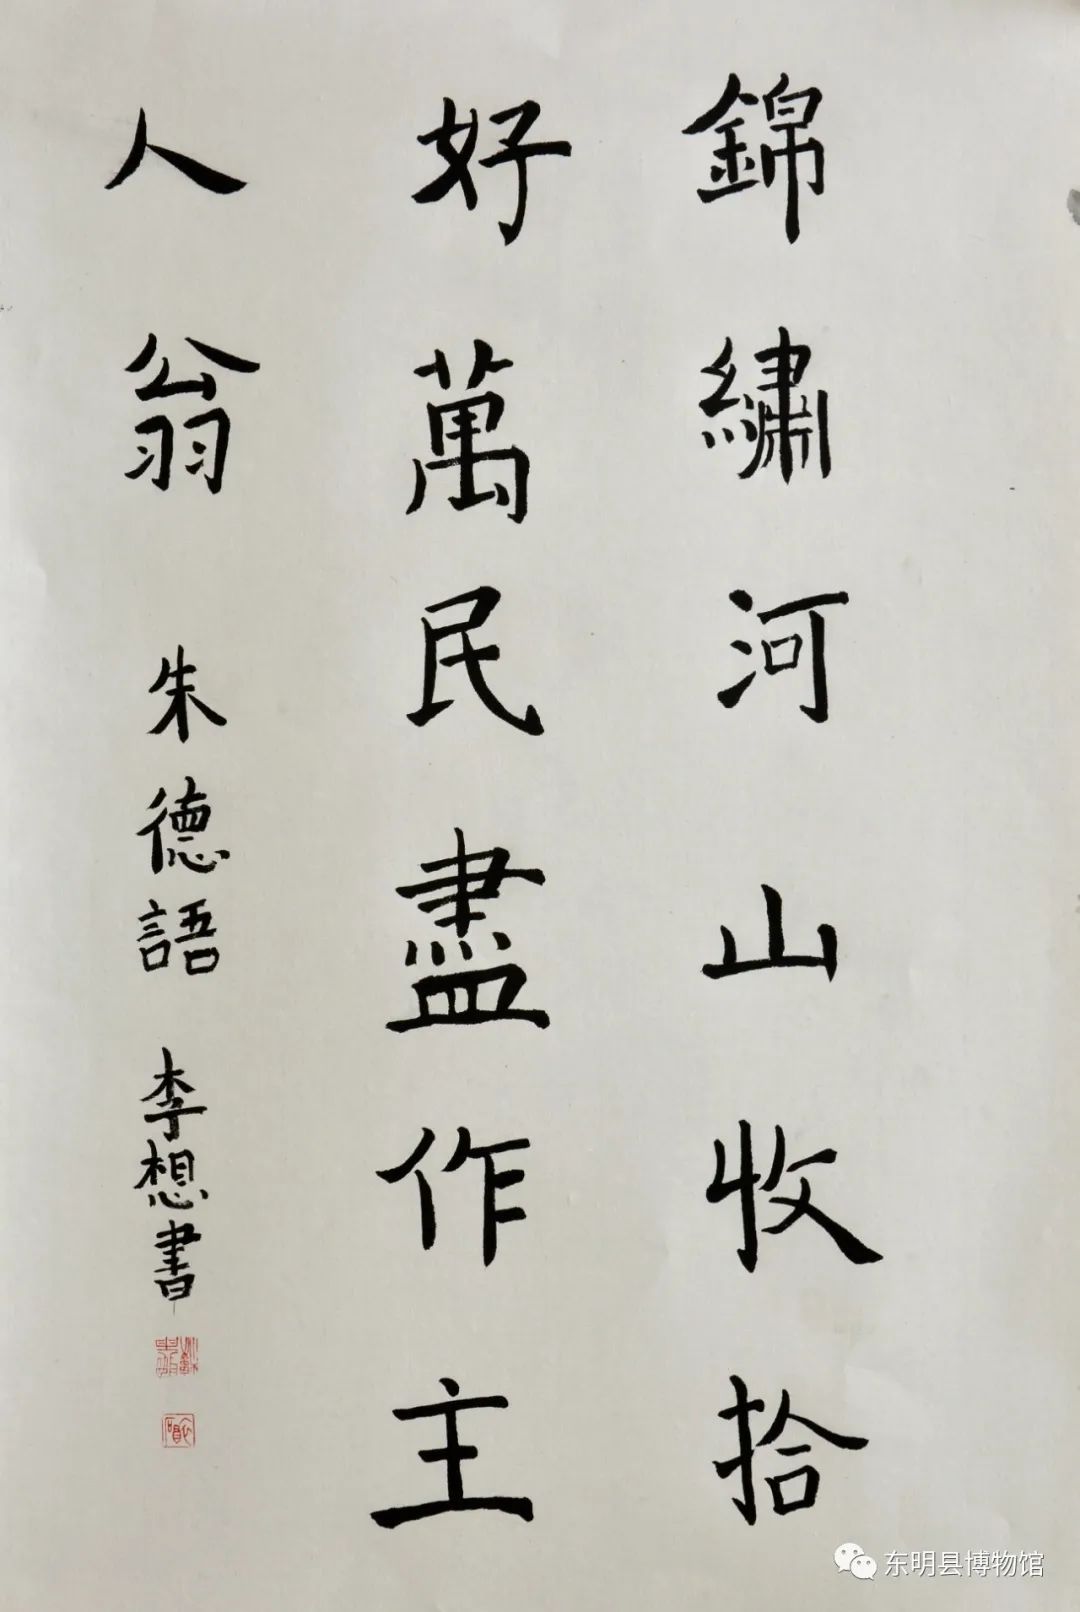 錦繡河山收拾
好萬民盡作主
人翁
朱德語 李想書
东明县博物馆